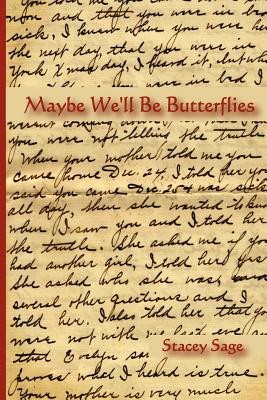 you told me you
now and that you were in bed
sick, I knew when you were here
the next day, that you were in
York Xmas day, I heard it, but who
you were in bed I
Maybe We'll Be Butterflies
weren't coming
you were not telling the truth
When your mother told me you
came home Dec. 24, I told her you
said you came Dec. 25 & was sick
all day, then she wanted to know
when I saw you and I told her
the truth. She asked me if you
had another girl, I told her yes
she asked who she was,
several other questions and I
told her. I also told her that you
were not with me last eve and
that Evelyn
proves what I heard is true.
Your mother is very much
Stacey Sage